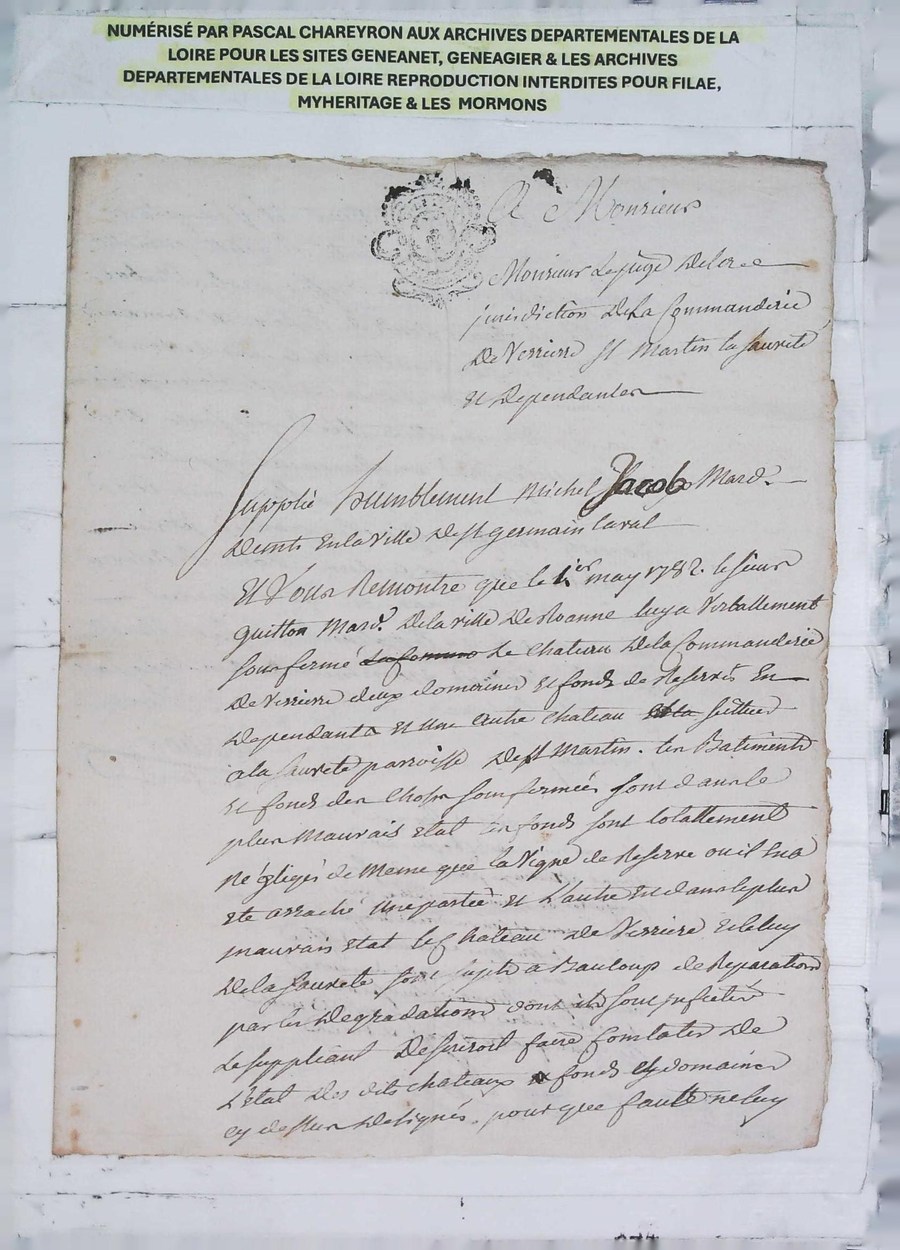 NUMÉRISÉ PAR PASCAL CHAREYRON AUX ARCHIVES DEPARTEMENTALES DE LA
LOIRE POUR LES SITES GENEANET, GENEAGIER & LES ARCHIVES
DEPARTEMENTALES DE LA LOIRE REPRODUCTION INTERDITES POUR FILAE,
MYHERITAGE & LES MORMONS
A Monsieur
Monsieur Le juge De la
jurisdiction De La Commanderie
De Verriere St Martin la Sauveté
Et Dependantes
Supplie humblement Michel Jacob Mard.
Demt En la Ville De St germain laval
Et Vous Remontre que le 1ier may 1782. le sieur
guitton Mard. De la ville De Roanne luy a Verballement
sous fermé Le Chateau De la Commanderie
De Verriere deux domaines Et fonds de Reserves En
Dependants Et une autre Chateau scittué
a la Sauveté parroisse De St Martin. les Batiments
Et fonds des Choses sous fermées sont dans le
plus Mauvais Etat les fonds sont totallement
Négligés de Meme que la Vigne de Reserve ou il En a
Eté arraché une partie Et L'autre Est dans le plus
mauvais Etat le Chateau De Verriere Et celuy
De la Sauveté sont sujets a Baucoup de Reparations
par les Degradations dont ils sont infectés
Le suppliant Desireroit faire Constater De
L'Etat Des dits chateaux fonds Et domaines
cy dessus Designés, pour que faute ne luy